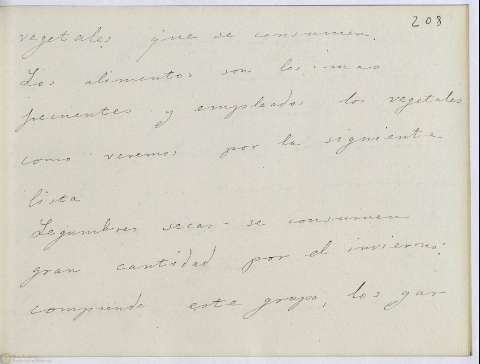 208
vegetales que se consumen.
Los alimentos son los mas
frecuentes y empleados los vegetales
como veremos por la siguiente
lista
Legumbres secas - se consumen
gran cantidad por el invierno:
comprende este grupo, los gar